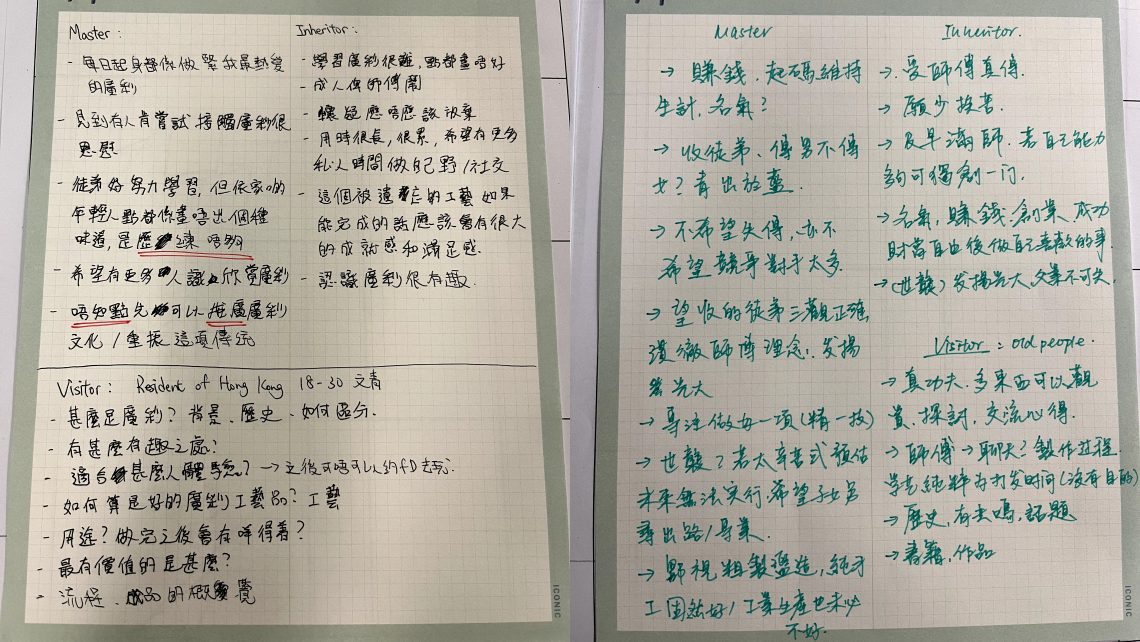 Master:
- 每日起身都係做緊我最熱愛
的廣彩
- 見到有人肯嘗試接觸廣彩很
恩慰
- 徒弟好努力學習，但依家啲
年輕人點都係畫唔出個種
味道，是歷練唔夠
- 希望有更多人識欣賞廣彩
- 唔知點先可以推廣廣彩
文化/重振這項傳統
Inheritor:
- 學習廣彩很難，點都畫唔好
- 成人俾師傅鬧
懷疑應唔應該放棄
- 用時很長，很累，希望有更多
私人時間做自己野/社交
- 這個被遺忘的工藝如果
能完成的話應該會有很大
的成就感和滿足感.
- 認識廣彩很有趣.
Visitor: Resident of Hong Kong 18-30 文青
- 甚麼是廣彩? 背景、歷史、如何區分.
- 有甚麼有趣之處?
- 適合甚麼人體驗? → 之後可唔可以約FD去玩?
- 如何算是好的廣彩工藝品? 工藝
- 用途? 做完之後會在咩得著?
- 最有價值的是甚麼?
- 流程、成品的概覽
ICONIC
Master
→ 賺錢、起碼維持
生計，名氣?
→ 收徒弟、傳男不傳
女? 青出於藍.
→ 不希望失傳，亦不
希望競爭對手太多.
→ 望收的徒弟三觀正確
貫徹師博理念、發揚
光大
→ 專注做好一項(精一技)
→ 世襲? 若太辛苦或預估
未來無法實行，希望子女另
尋出路/專業.
→ 鄙視粗製濫造，純手
工固然好/工業生產也未必
不好.
Inheritor.
→ 受師傅真傳.
→ 願少挨苦.
→ 及早滿師. 若自己能力
夠可獨創一门.
→ 名氣，賺錢，創業，成功
財富自由後做自己喜歡的事.
→ (世襲)发揚光大，父業不可失.
Visitor: old people.
→ 真功夫. 多東西可以觀
賞、探討，交流心得.
→ 師傅→聊天? 製作过程
纯粹为打发时间(没有目的)
→ 歷史，有去嗎，話題
→ 書籍，作品
ICONIC